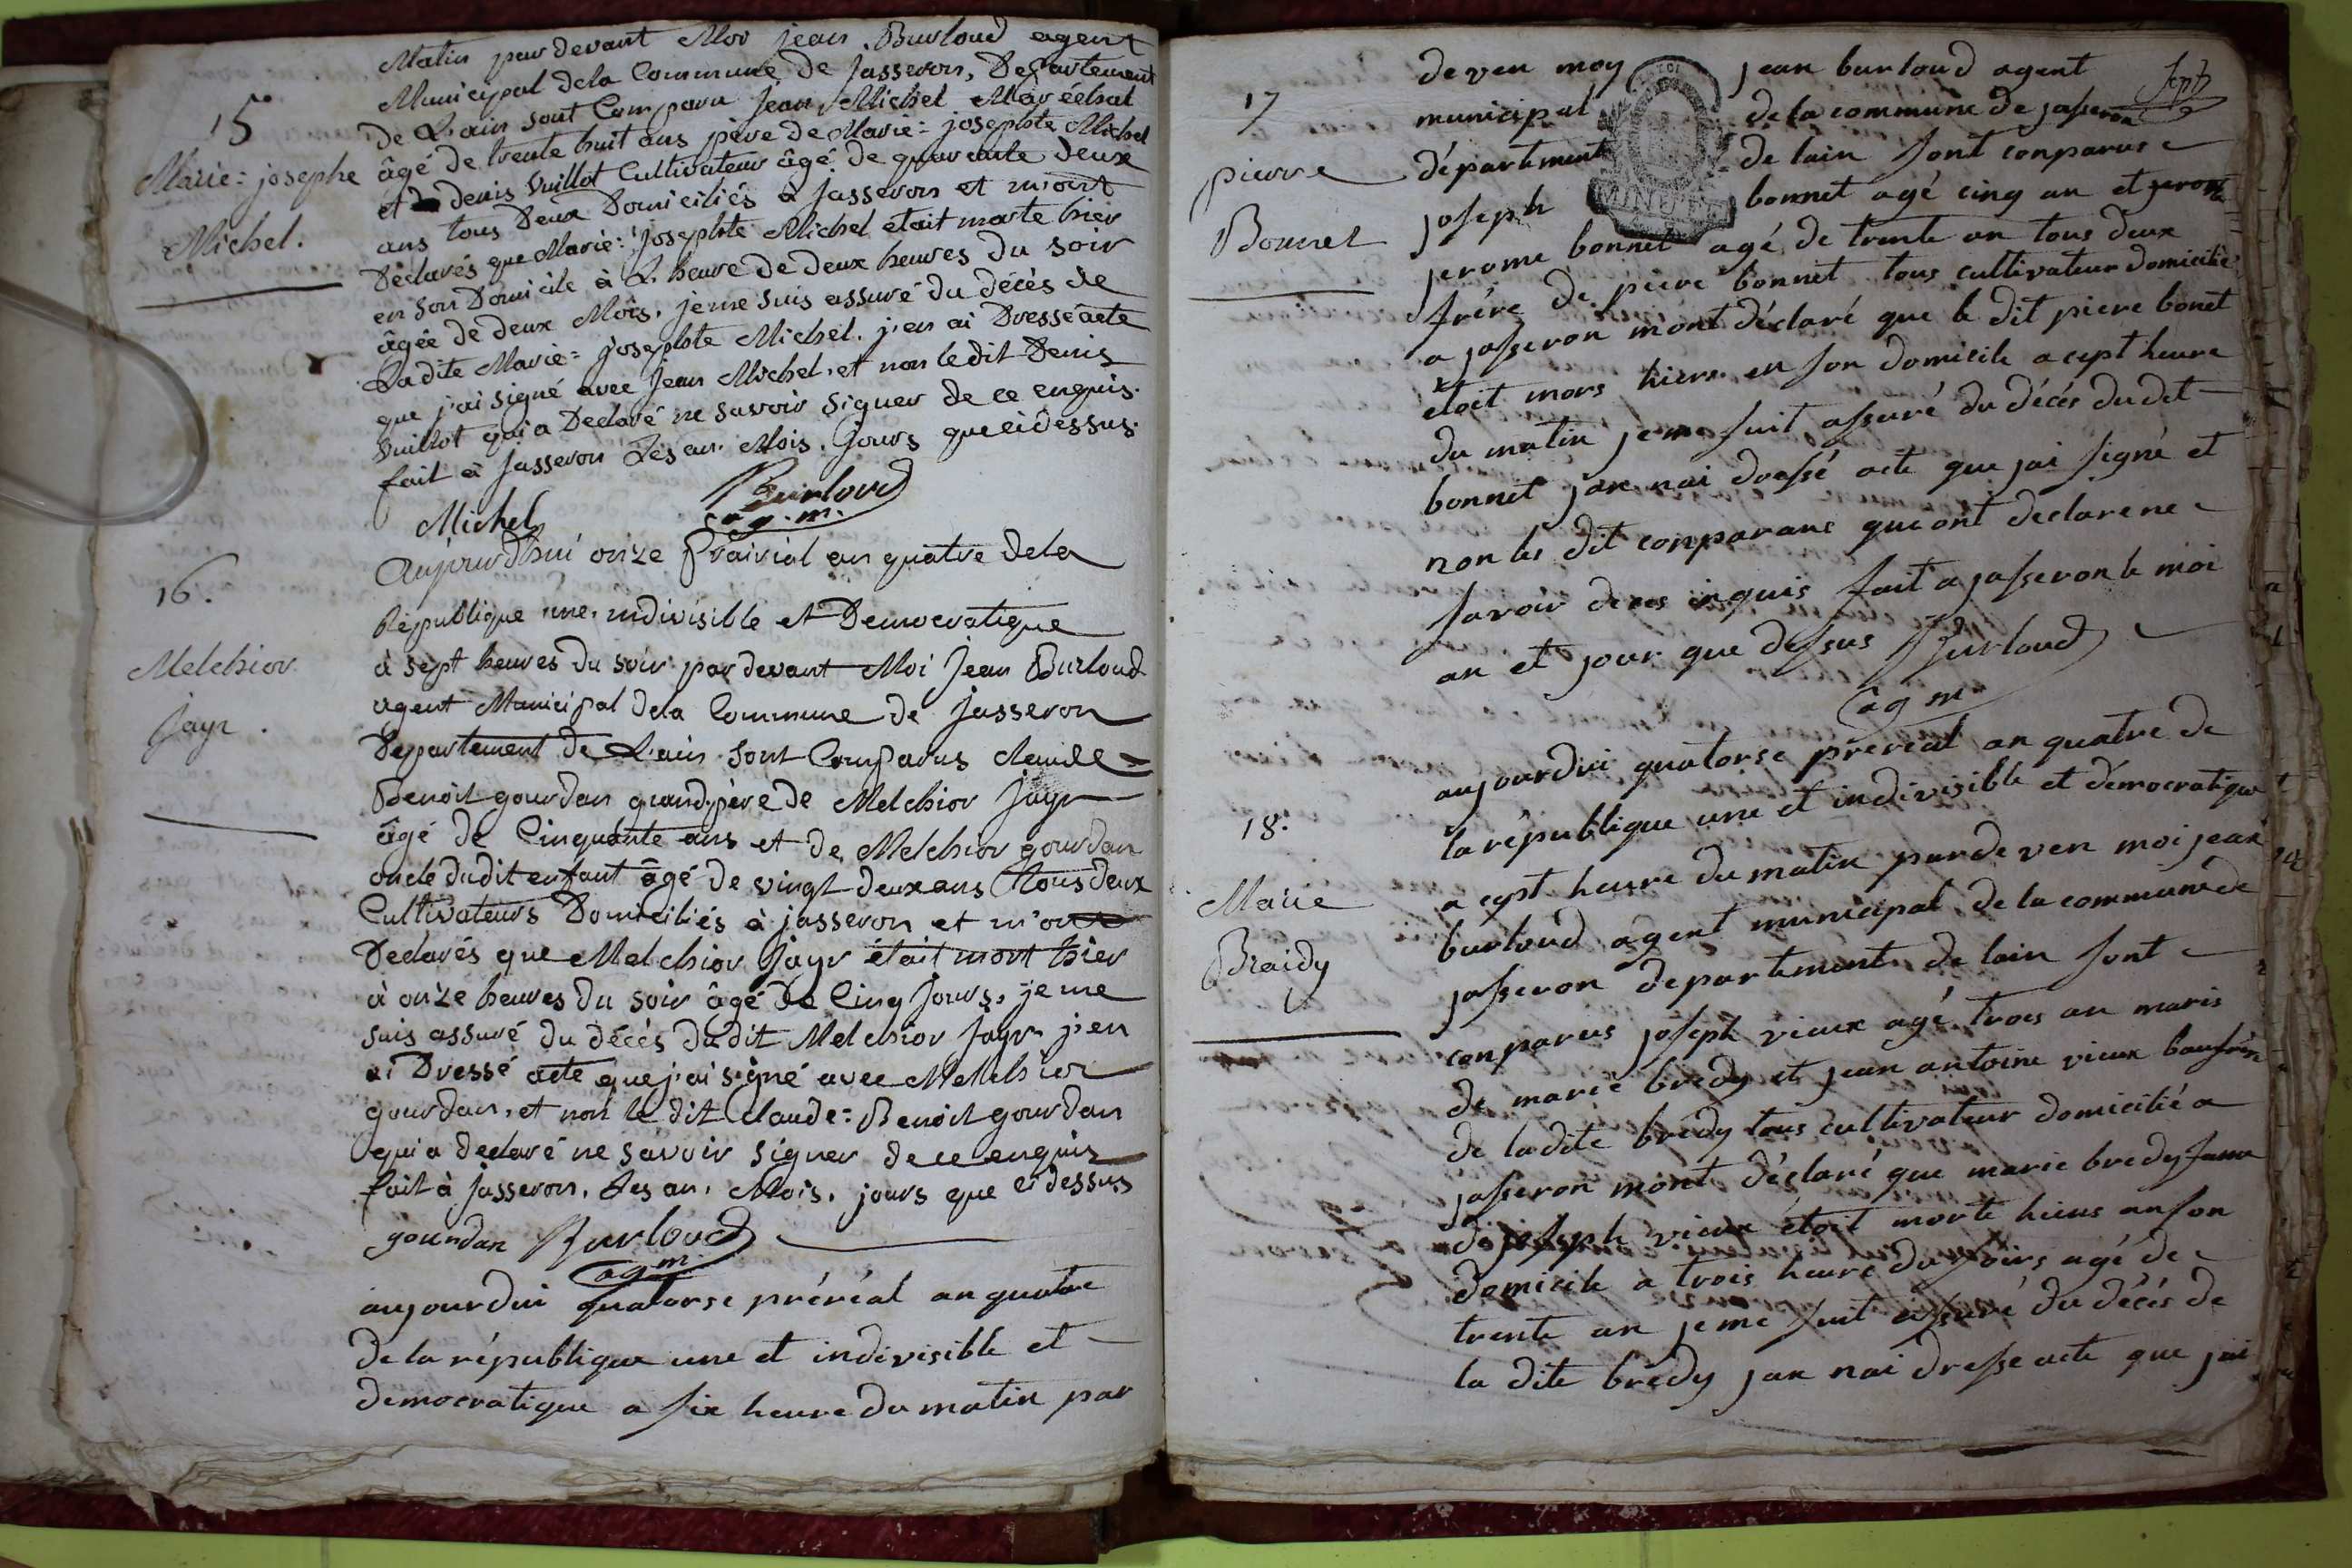 Matin par devant Moi jean Burloud agent
Municipal dela Commune de Jasseron, Departement
de L'ain sont Comparu Jean Michel Maréchal
âgé de trente huit ans père de Marie= josephte Michel
et denis Vuillot Cultivateur âgé de quarante deux
ans tous Deux Domiciliés à Jasseron et m'ont
Déclarés que Marie= josephte Michel était morte hier
en son Domicile à L'heure de deux heures du soir
âgée de deux Mois. je me suis assuré du décès de
Ladite Marie= josephte Michel. j'en ai Dressé acte
que j'ai signé avec Jean Michel. et non ledit Denis
Vuillot qui a Declaré ne savoir signer de ce enquis.
fait à Jasseron Les an. Mois. Jours que ci dessus.
Michel Burloud
ag. m.
15
Marie= josephe
Michel.
16.
Melchior
Jayr.
Aujourd'hui onze Prairial an quatre dela
République une. indivisible et Democratique
à sept heures du soir par devant Moi Jean Burloud
agent Municipal dela Commune de Jasseron
Departement de L'ain sont Comparus claude=
Benoit gourdan grand père de Melchior Jayr
âgé de Cinquante ans et de Melchior gourdan
oncle dudit enfant âgé de vingt deux ans Tous deux
Cultivateurs Domiciliés à jasseron et m'ont
Declarés que Melchior Jayr était mort hier
à onze heures du soir âgé de Cinq Jours. je me
suis assuré du décès dudit Melchior Jayr j'en
ai Dressé acte que j'ai signé avec Melchior
gourdan, et non le dit Claude= Benoit gourdan
qui a declaré ne savoir signer de ce enquis
fait à Jasseron. Les an. Mois. jours que ci dessus
gourdan Burloud
ag m
aujourdui quatorse préréal an quatre
de la république une et indivisible et
democratique a six heure du matin par
17
pierre
Bonnet
deven moy jean burloud agent
municipal de la commune de jasseron
département de lain sont conparus
joseph bonnet agé cinq an et jerome
MINUTE
jerome bonnet agé de trente an tous deux
frére de piere bonnet tous cultivateur domicilié
a jasseron mont déclaré que le dit piere bonet
étoit mors hiers en son domicile a cept heure
du matin je me suit assuré du décés du dit
bonnet jan nai dressé acte que jai signé et
non les dit conparans qui ont declare ne
savoir de ces inquis fait a jasseron le moi
an et jour que dessus Burloud
ag m
18.
Marie
Braidy
aujourdui quatorse préréal an quatre de
la république une et indivisible et démocratique
a cept heure du matin pardeven moi jean
burloud agent municipal de la commune de
jasseron département de lain sont
conparus joseph vieux agé trois an maris
de marie bredy et jean antoine vieux baufrére
de la dite bredy tous cultivateur domicilié a
jasseron mont déclaré que marie bredy fame
de joseph vieux étoit morte hiers anson
domicile a trois heure du soirs agé de
trente an je me suit assuré du décés de
la dite bredy jan nai dresse acte que jai